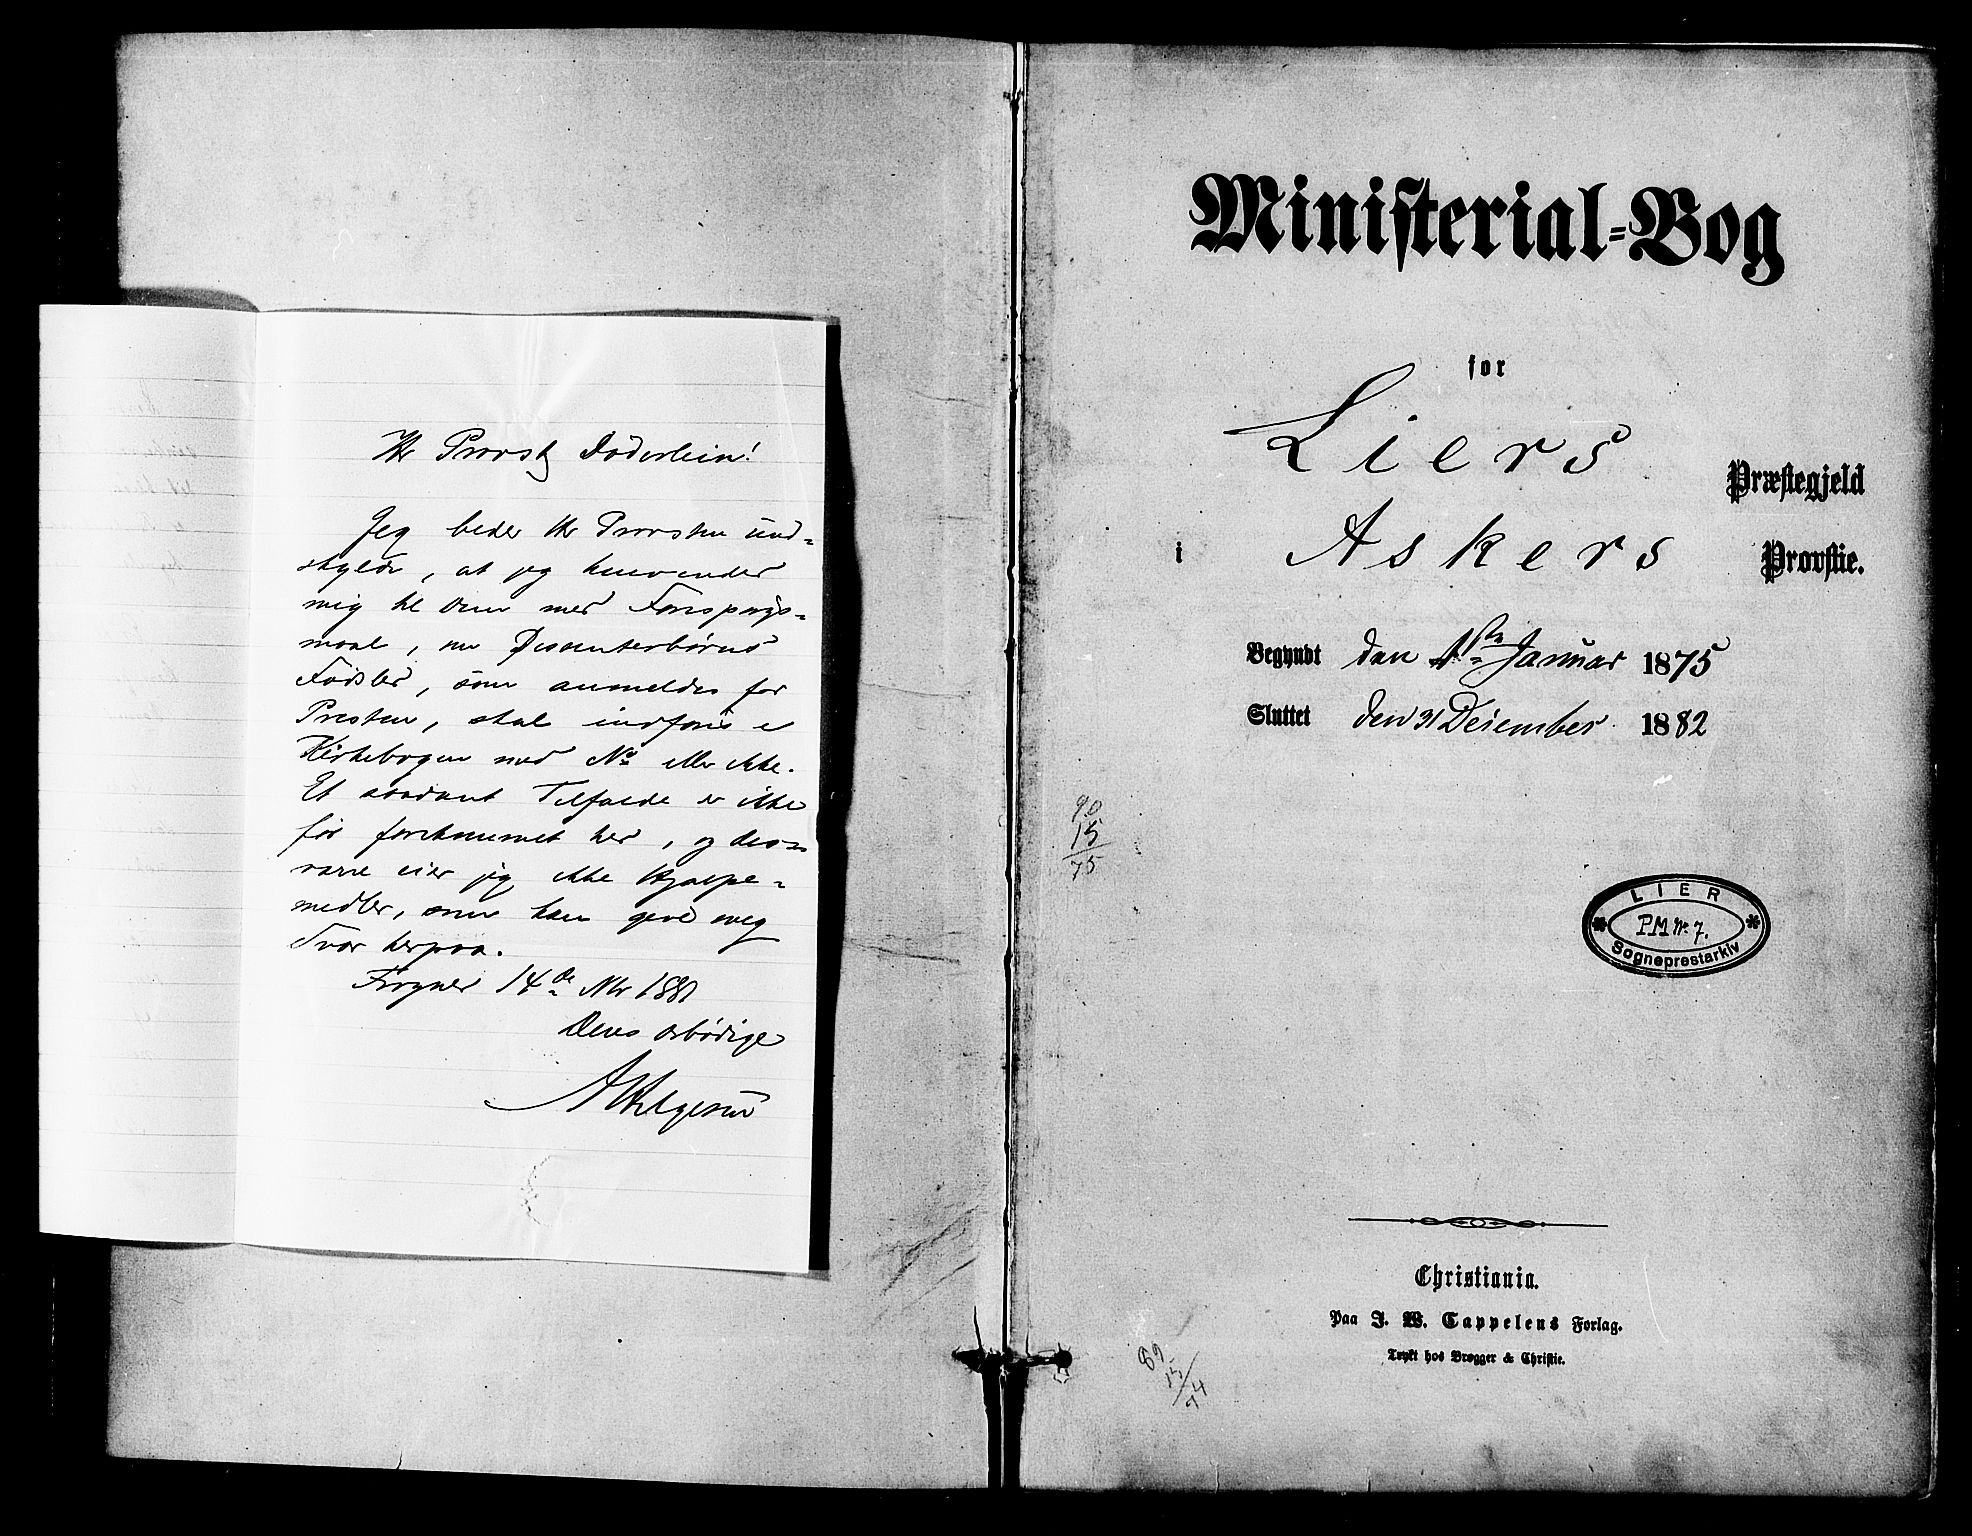 Hr Provst Döderlein!
Jeg beder Hr Provsten und-
skylde, at jeg henvender
mig til Dem med Forespørgs-
maal, om Dissenterbørns
Fødsler, som anmeldes for
Presten, skal indføres i
Kirkebogen med No eller ikke.
Et saadant Tilfælde er ikke
før forekommet her, og des-
værre eier jeg ikke Hjælpe-
midler, som kan give mig
Svar herpaa.
Frogner 14de 1881
Deres ærbødige
Ministerial-Bog
for
Liers Præstegjeld
i Askers Provstie.
Begyndt den 1ste Januar 1875
Sluttet den 31 December 1882
90
15
75
LIER
PM Nr. 7.
Sogneprestarkiv
Christiania.
Paa J. W. Cappelens Forlag.
Trykt hos Brøgger & Christie.
89
15
74